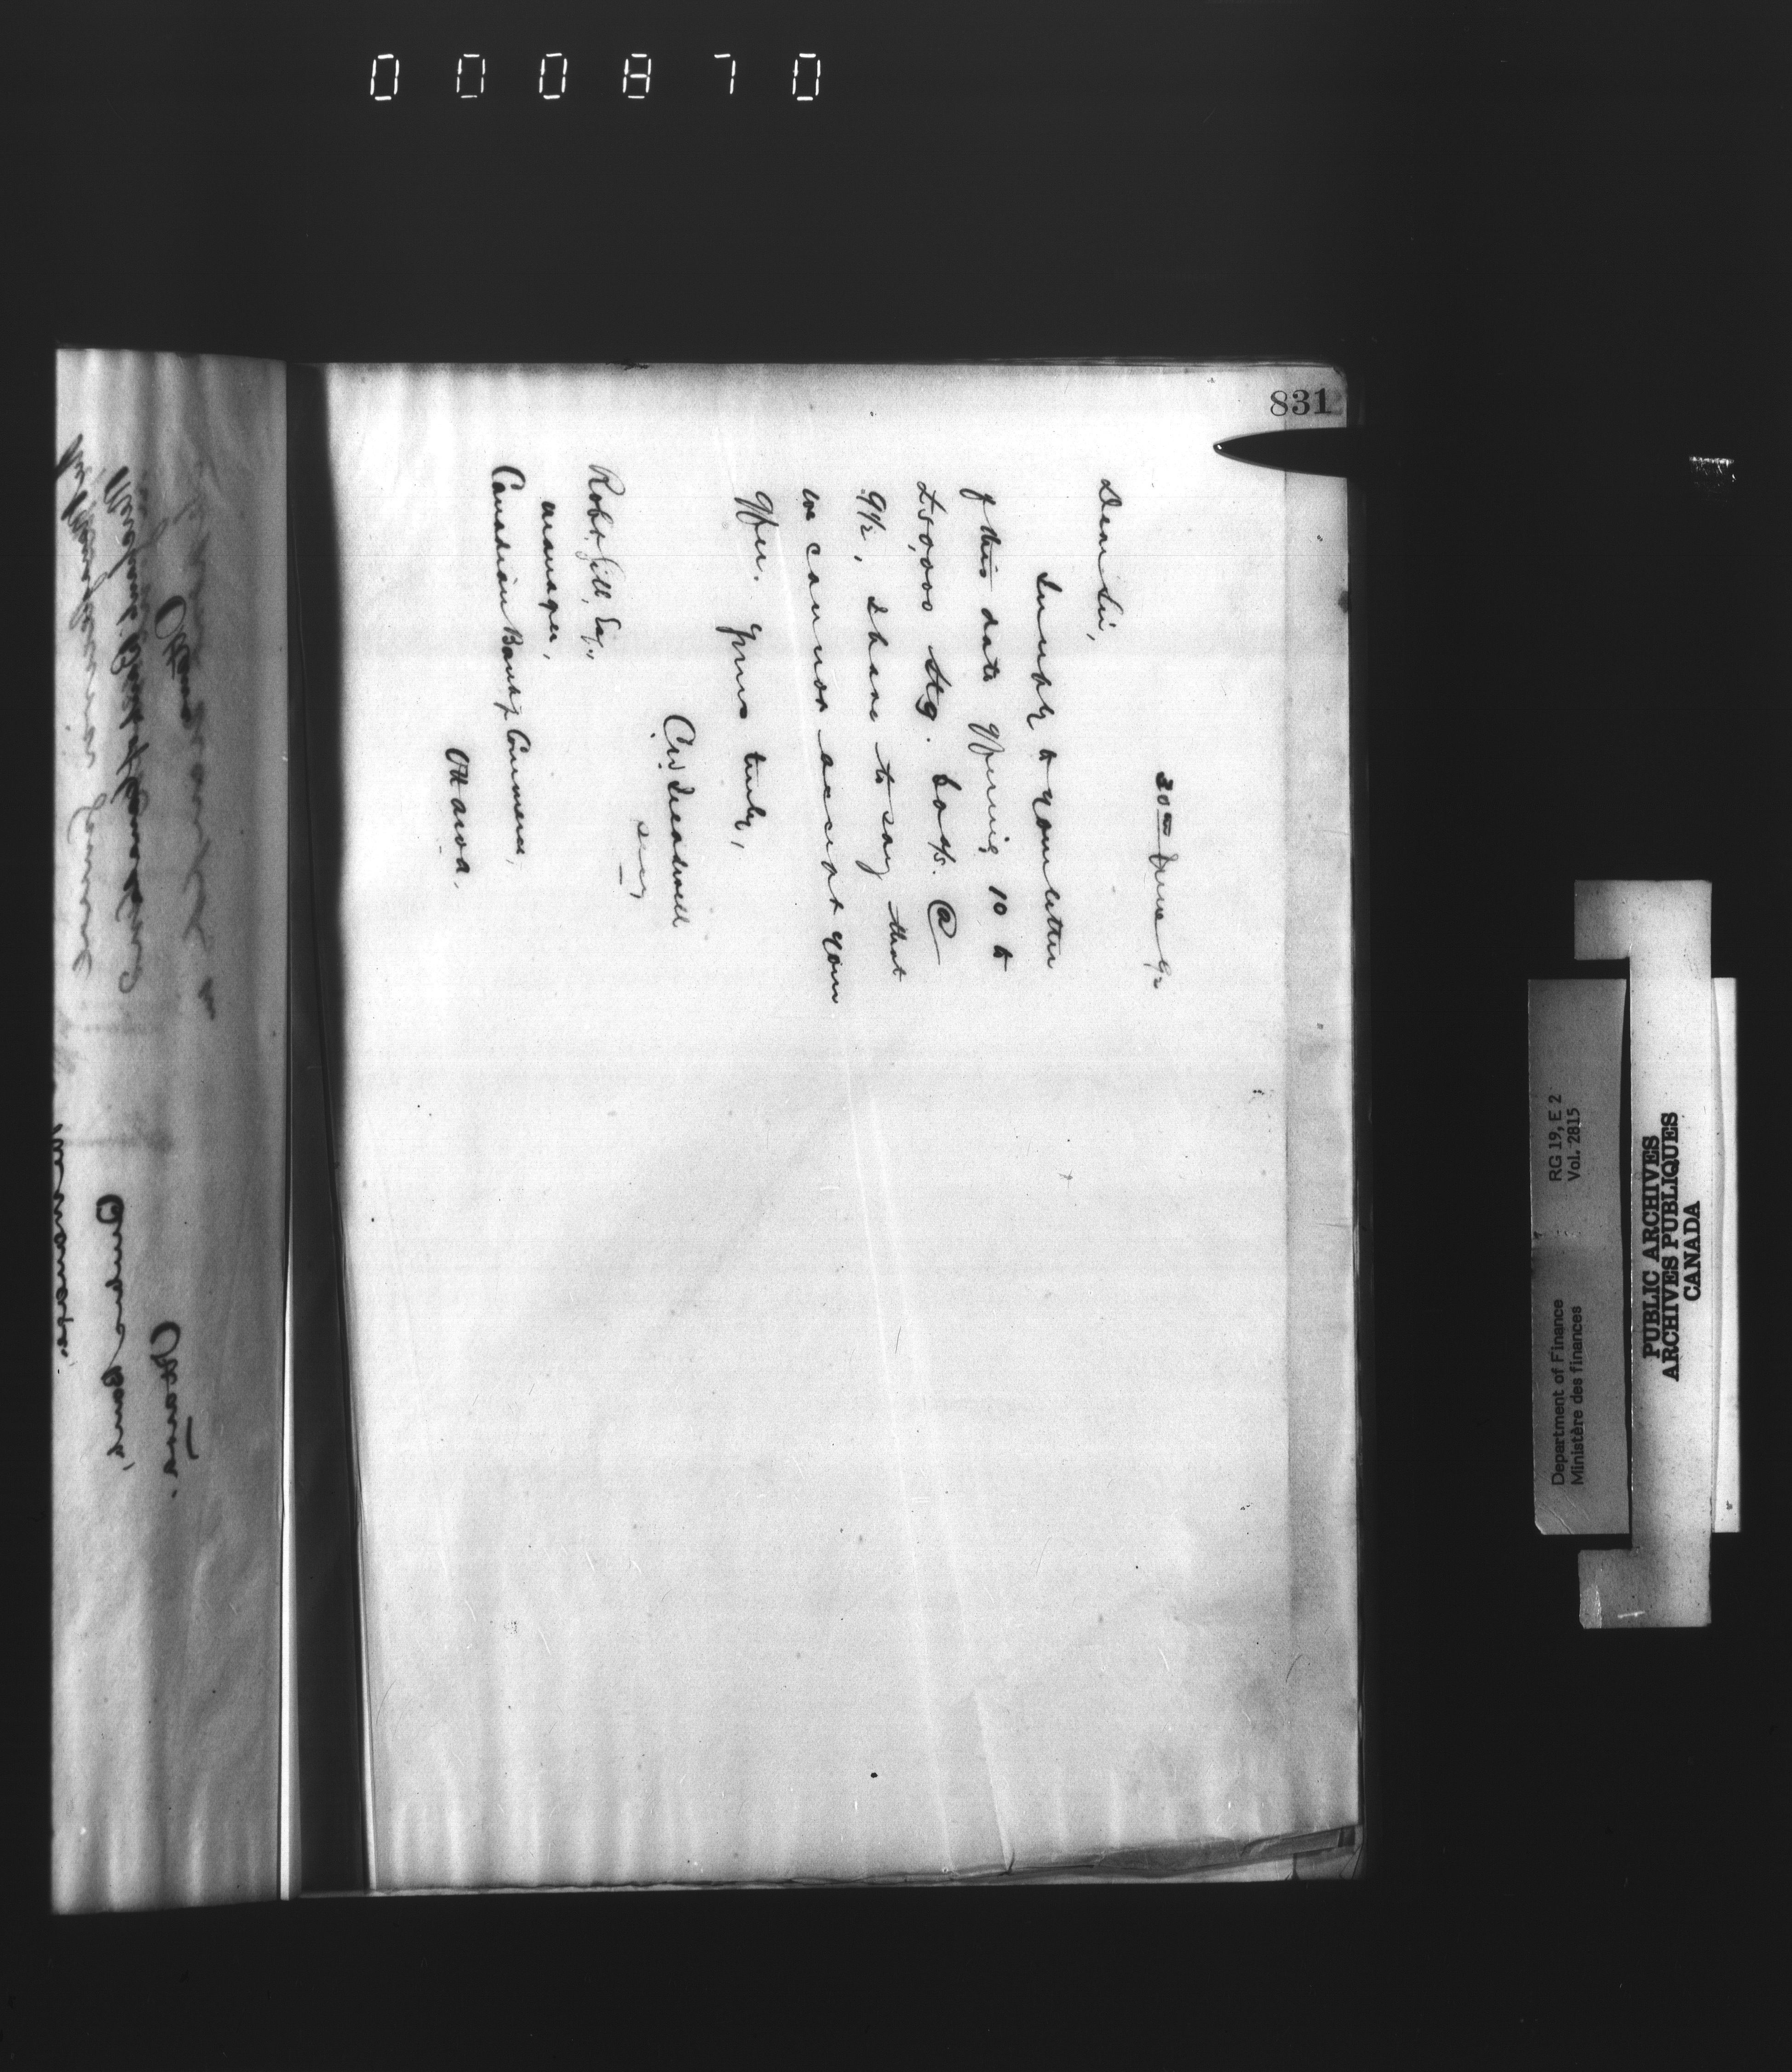 000870
831
30th June 92
Dear Sir,
In reply to your letter
of this date offering 10 to
£50,000 stg. 60 d/s. @
9½, I have to say that
we cannot accept your
offer. Yours truly,
C.W. Treadwell
Robt. Gill, Esq.,
Manager,
Canadian Bank of Commerce,
Ottawa.
Quebec Bank,
Ottawa.
Department of Finance
Ministère des finances
RG 19, E 2
Vol. 2815
PUBLIC ARCHIVES
ARCHIVES PUBLIQUES
CANADA